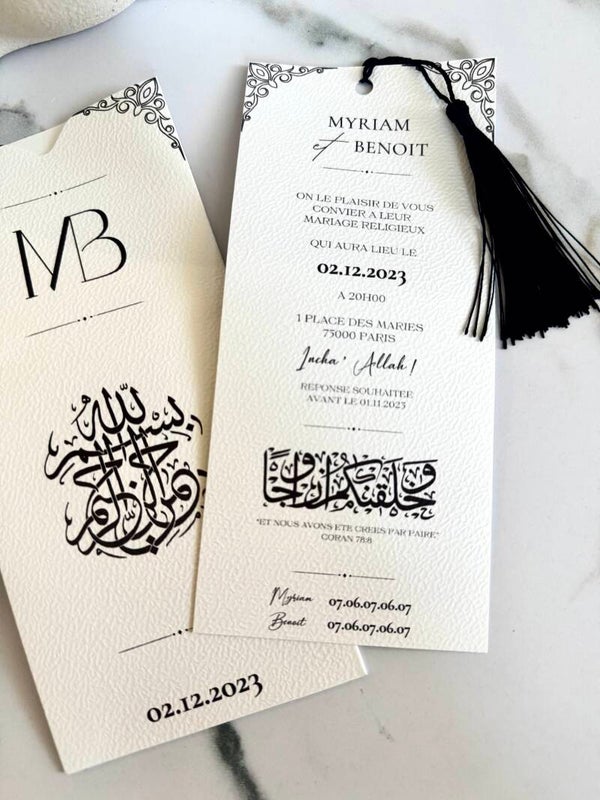 MB
بسم الله الرحمن الرحيم
02.12.2023
MYRIAM
et BENOIT
ON LE PLAISIR DE VOUS
CONVIER A LEUR
MARIAGE RELIGIEUX
QUI AURA LIEU LE
02.12.2023
A 20H00
1 PLACE DES MARIES
75000 PARIS
Incha' Allah !
REPONSE SOUHAITEE
AVANT LE 01.11.2023
وَخَلَقْنَكُمْ أَزْوَاجًا
"ET NOUS AVONS ETE CREES PAR PAIRE"
CORAN 78:8
Myriam 07.06.07.06.07
Benoit 07.06.07.06.07